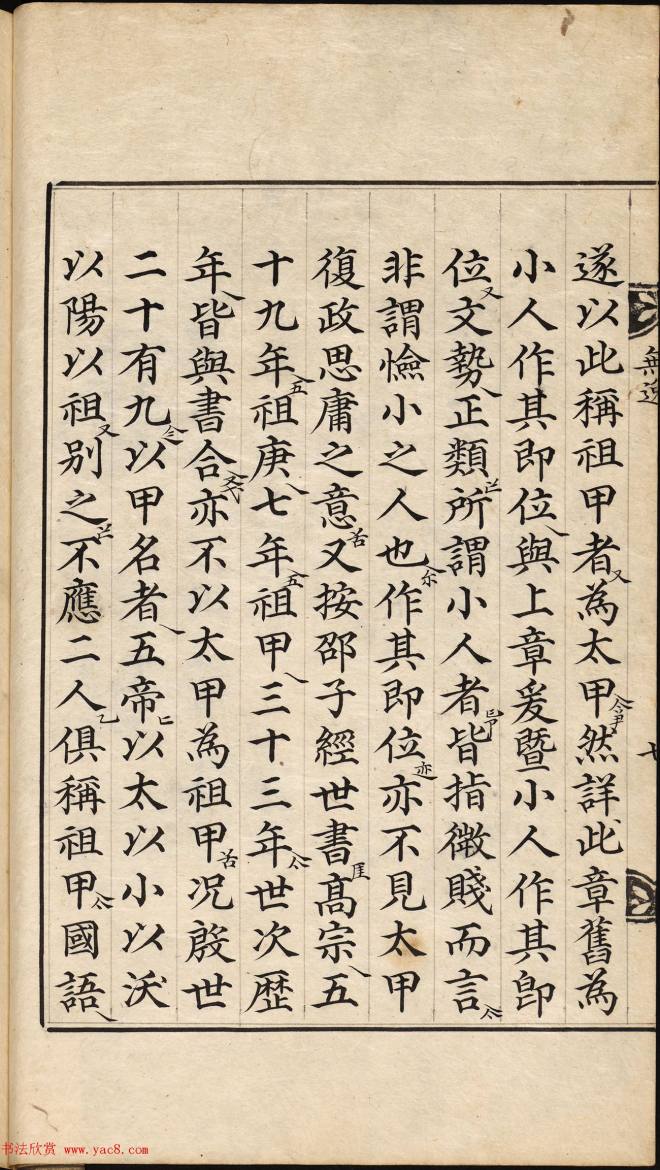 無逸
遂以此稱祖甲者為太甲然詳此章舊為
小人作其即位與上章爰暨小人作其即
位文勢正類所謂小人者皆指微賤而言
非謂憸小之人也作其即位亦不見太甲
復政思庸之意又按邵子經世書髙宗五
十九年祖庚七年祖甲三十三年世次歷
年皆與書合亦不以太甲為祖甲况殷世
二十有九以甲名者五帝以太以小以沃
以陽以祖別之不應二人俱稱祖甲國語
书法欣赏 www.yac8.com